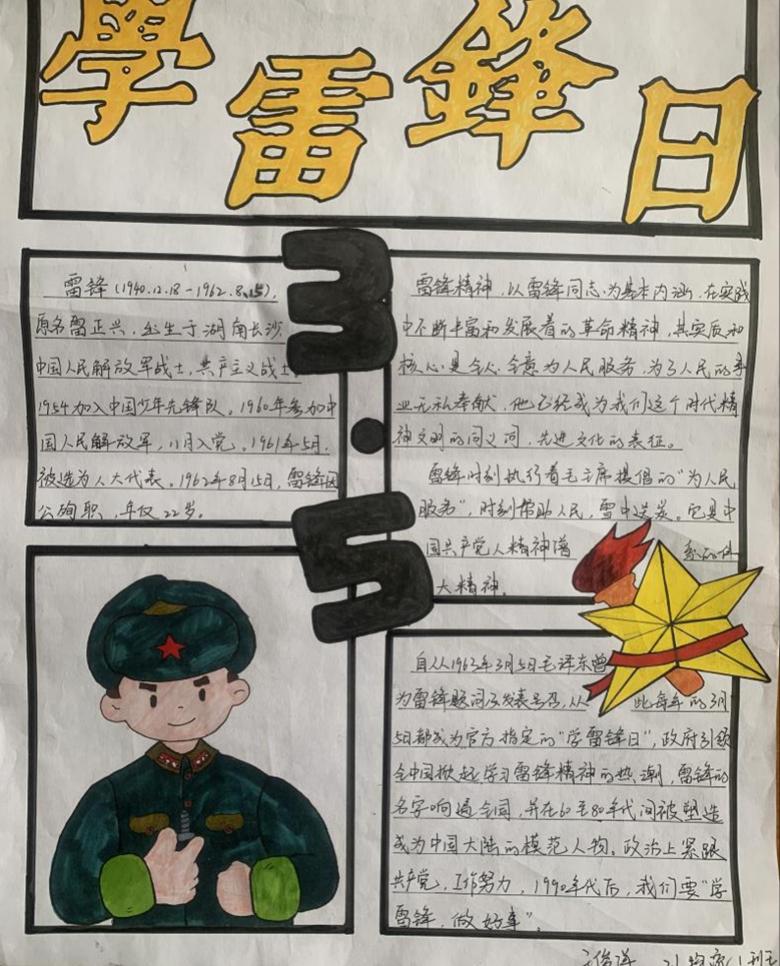 學雷鋒日
3·5
雷锋(1940.12.18-1962.8.15),
原名雷正兴,出生于湖南长沙
中国人民解放军战士,共产主义战士
1954加入中国少年先锋队。1960年参加中
国人民解放军,11月入党。1961年5月,
被选为人大代表。1962年8月15日,雷锋因
公殉职,年仅22岁。
雷锋精神,以雷锋同志为基本内涵,在实践
中不断丰富和发展着的革命精神,其实质和
核心是全心全意为人民服务,为了人民的事
业无私奉献,他已经成为我们这个时代精
神文明的同义词,先进文化的表征。
雷锋时刻执行着毛主席提倡的“为人民
服务”,时刻帮助人民,雪中送炭。它是中
国共产党人精神谱系的伟
大精神。
自从1963年3月5日毛泽东曾
为雷锋题词及发表号召,从此每年的3月
5日都成为官方指定的“学雷锋日”,政府引领
全中国掀起学习雷锋精神的热潮,雷锋的
名字响遍全国,并在60至80年代间被塑造
成为中国大陆的模范人物。政治上紧跟
共产党,工作努力,1990年代后,我们要“学
雷锋,做好事”。